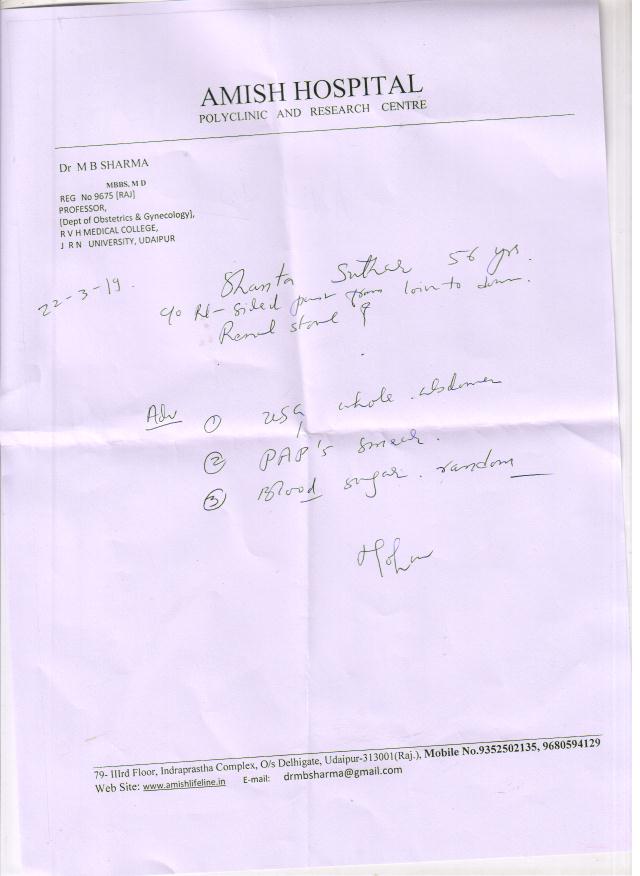 AMISH HOSPITAL
POLYCLINIC AND RESEARCH CENTRE
Dr M B SHARMA
MBBS, M D
REG No 9675 [RAJ]
PROFESSOR,
[Dept of Obstetrics & Gynecology],
R V H MEDICAL COLLEGE,
J R N UNIVERSITY, UDAIPUR
22-3-19.
Shanta Suthar 56 yrs.
c/o Rt-sided pain from loin to down.
Renal stone ?
Adv ① USG whole abdomen
② PAP's smear.
③ Blood sugar. random
79- IIIrd Floor, Indraprastha Complex, O/s Delhigate, Udaipur-313001(Raj.), Mobile No.9352502135, 9680594129
Web Site: www.amishlifeline.in E-mail: drmbsharma@gmail.com